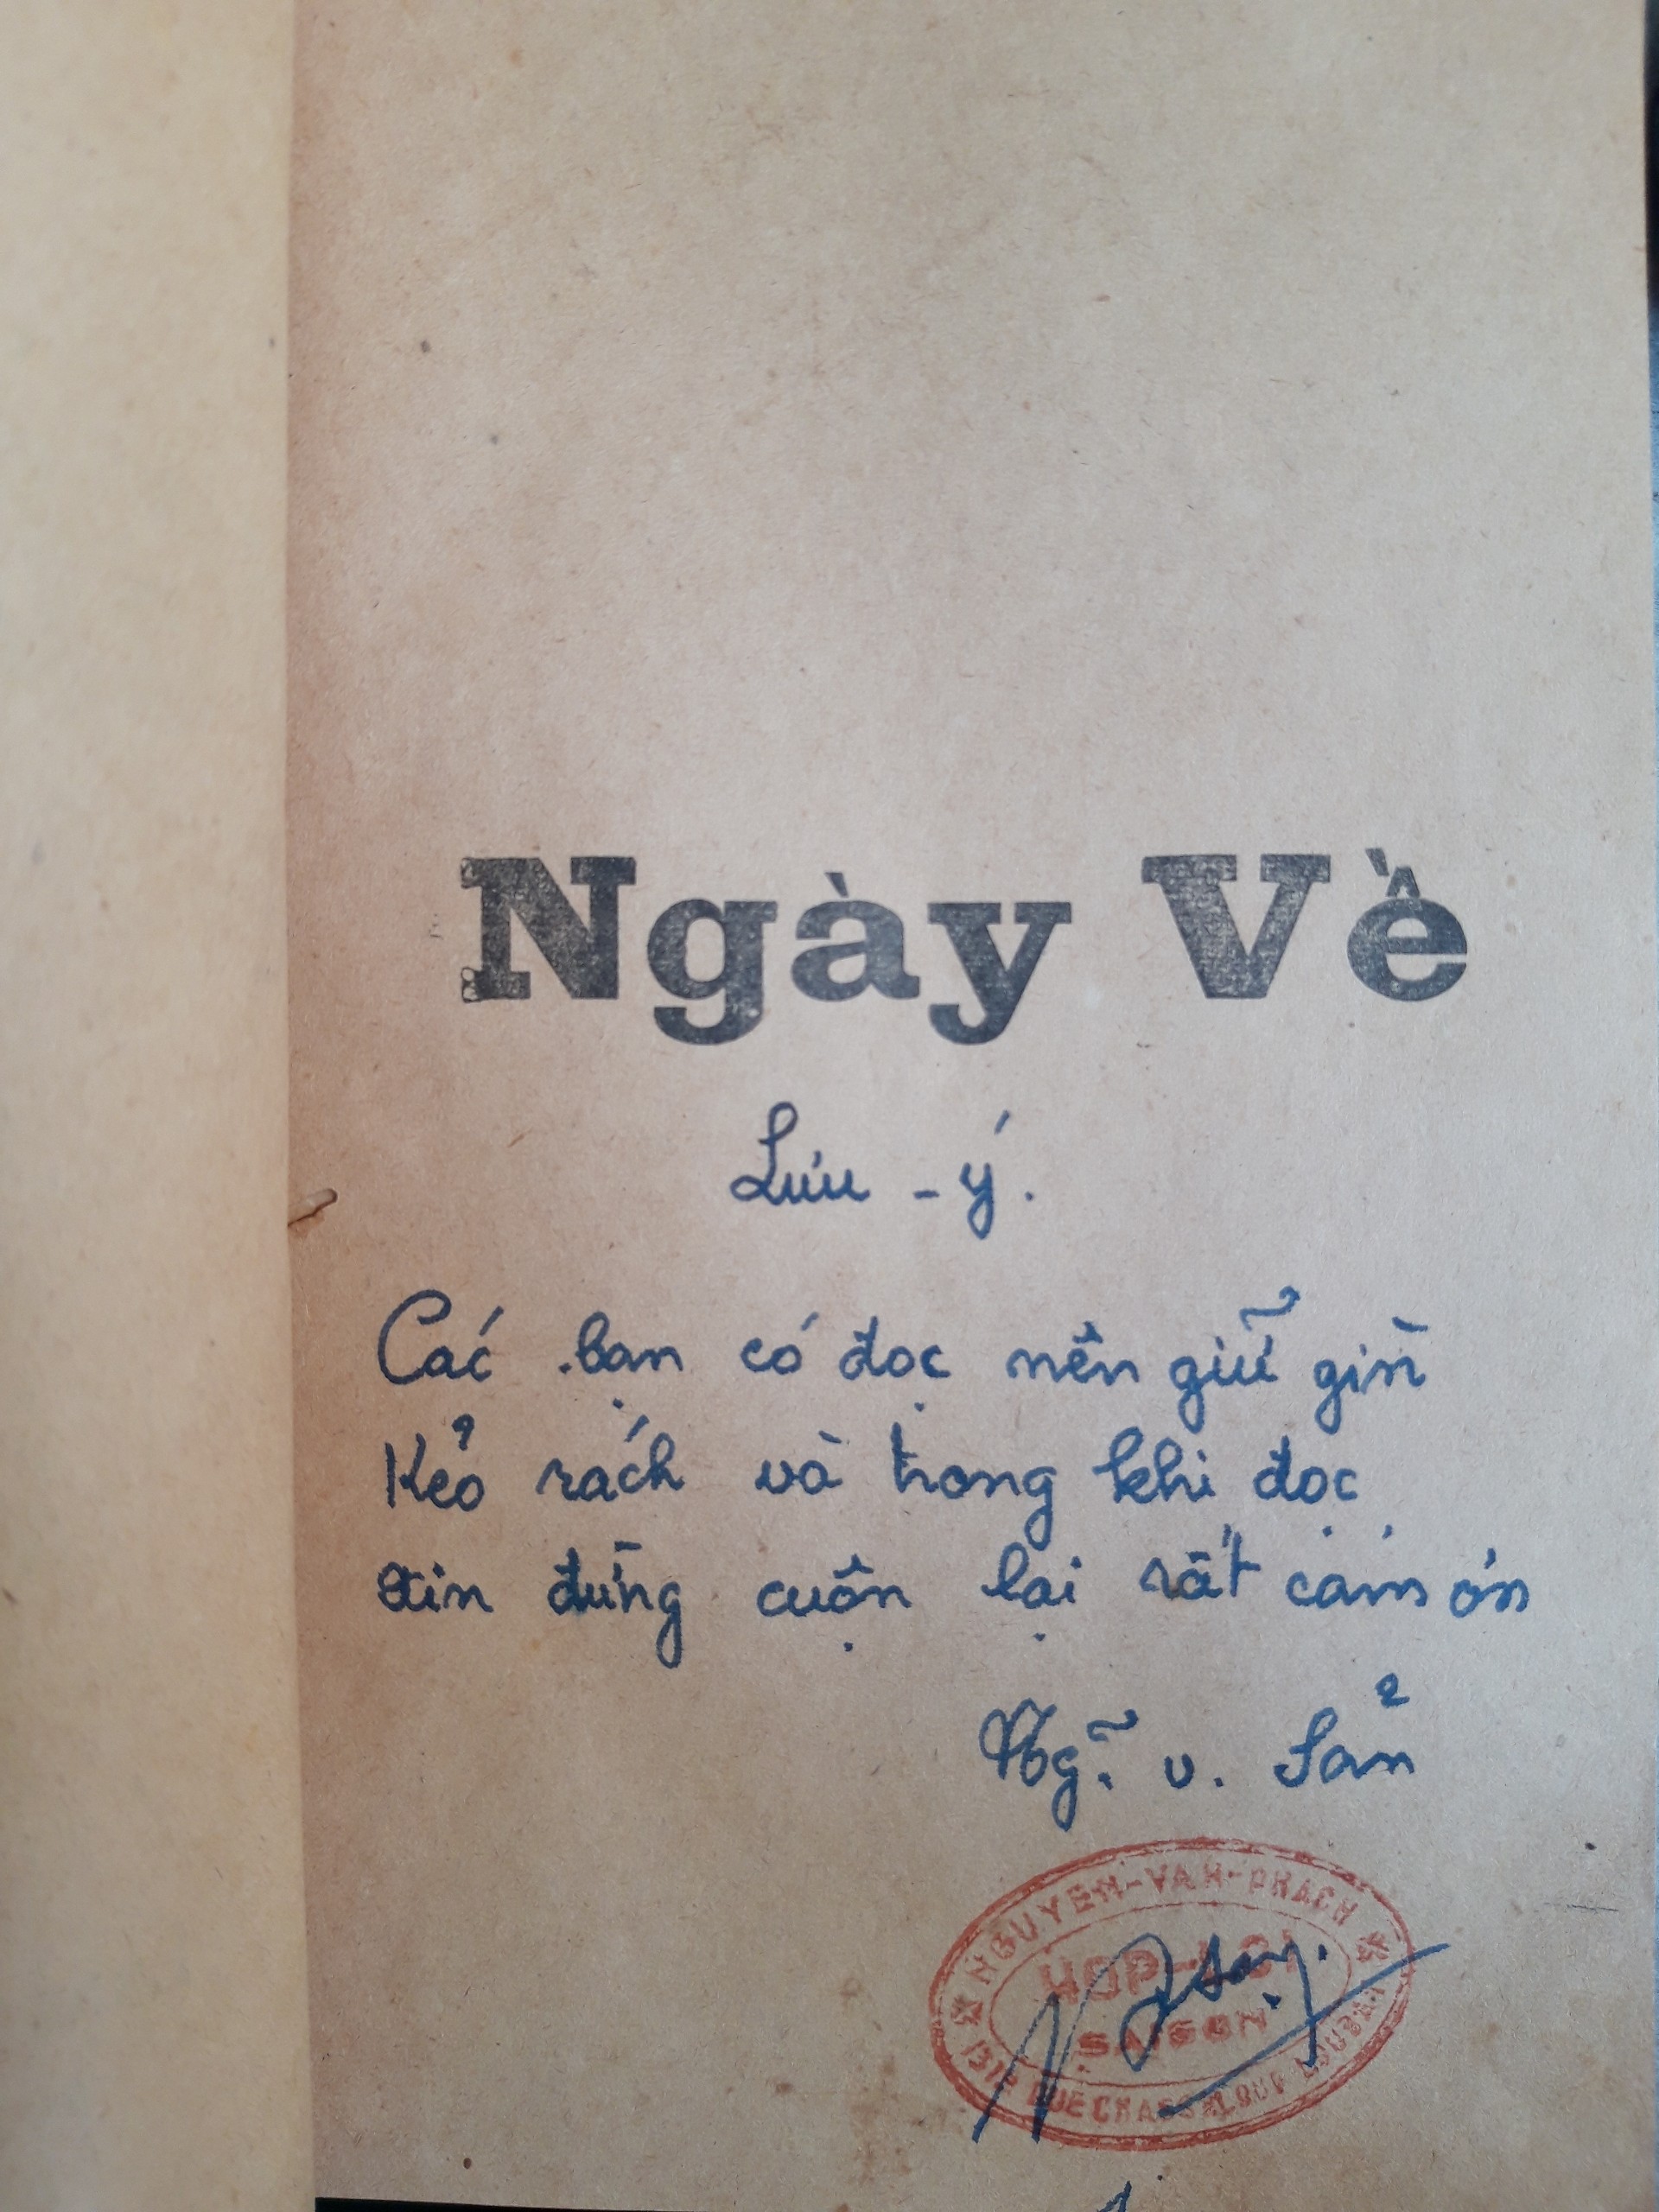 Ngày Về
Lưu - ý.
Các bạn có đọc nên giữ gìn
Kẻo rách và trong khi đọc
xin đừng cuộn lại rất cám ơn
Ngỹ. v. Sản
NGUYEN-VAN-PHACH
HOP-LOI
SAIGON
RUE CHASSELOUP LAUBAT